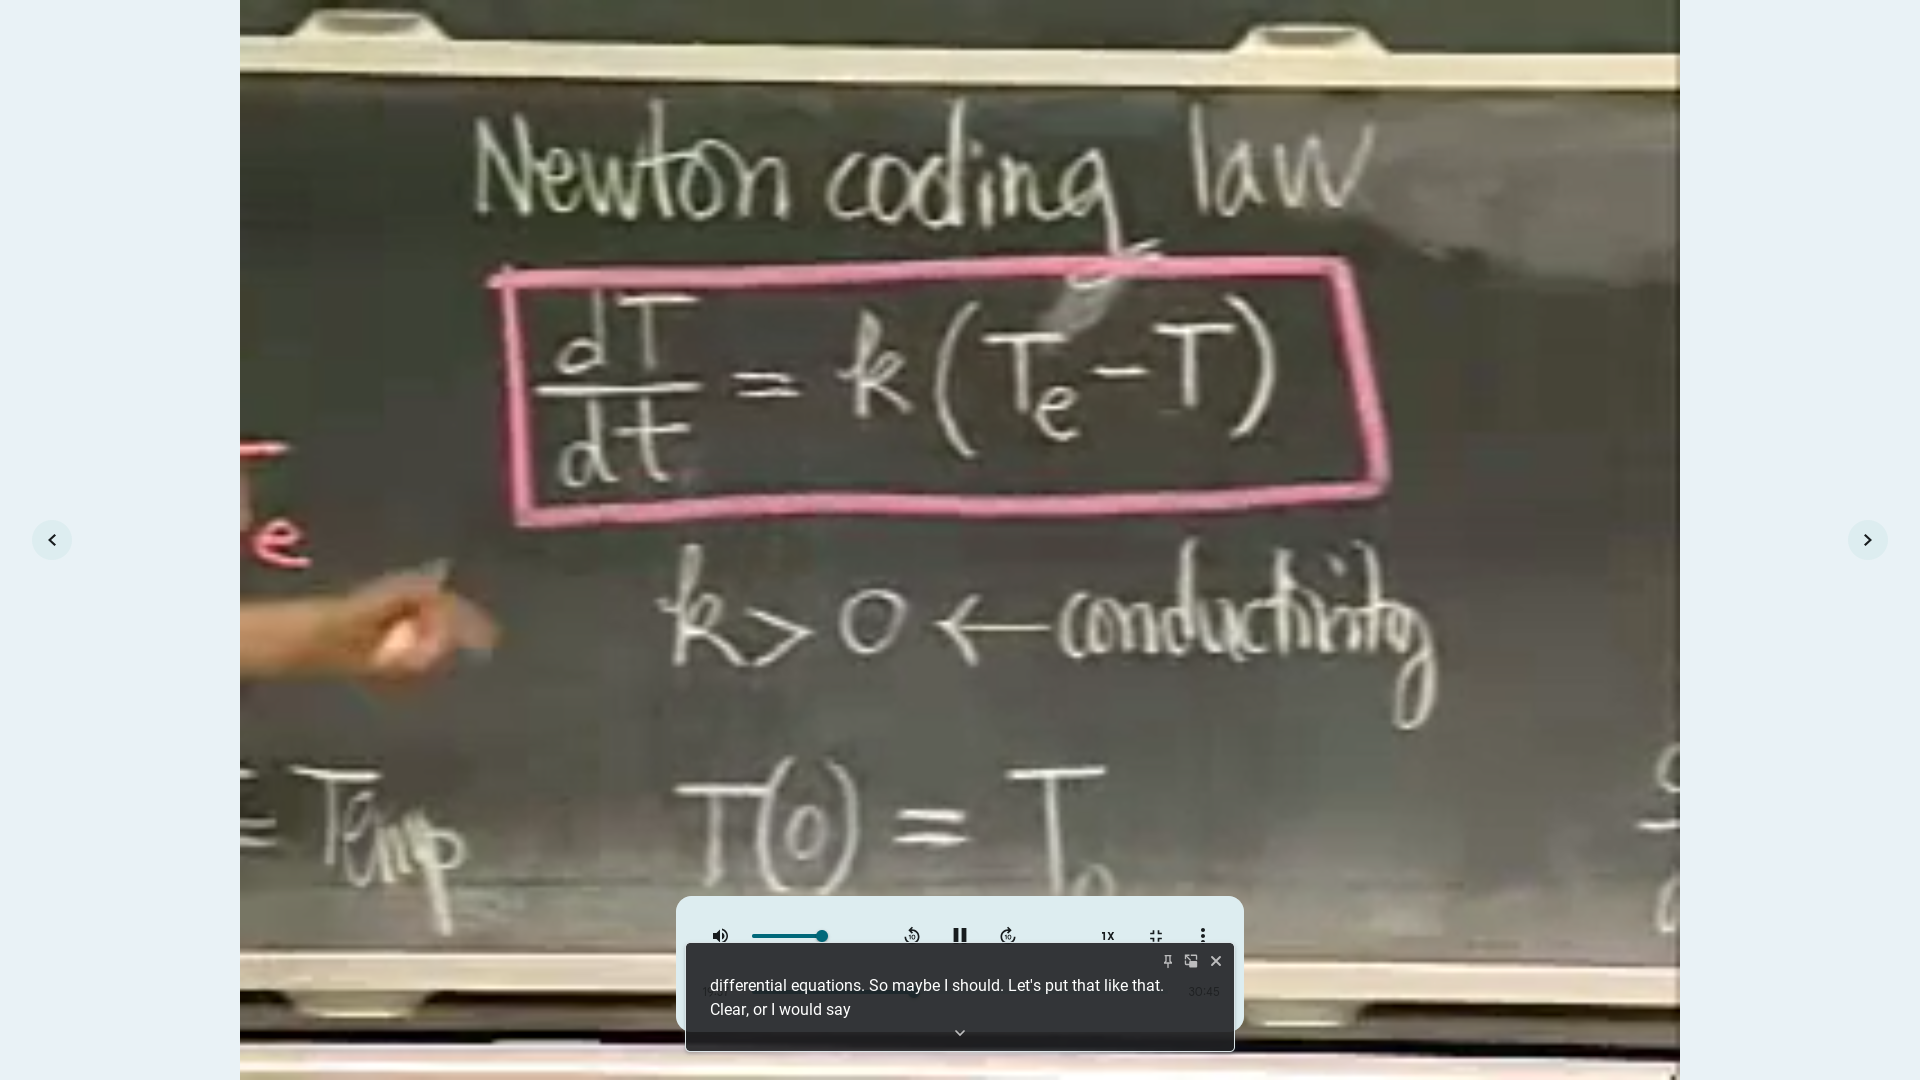 Newton coding law
dT/dt = k(Te-T)
e
k > 0 ← conductivity
= Temp
T(0) = To
1X
differential equations. So maybe I should. Let's put that like that.
30:45
Clear, or I would say